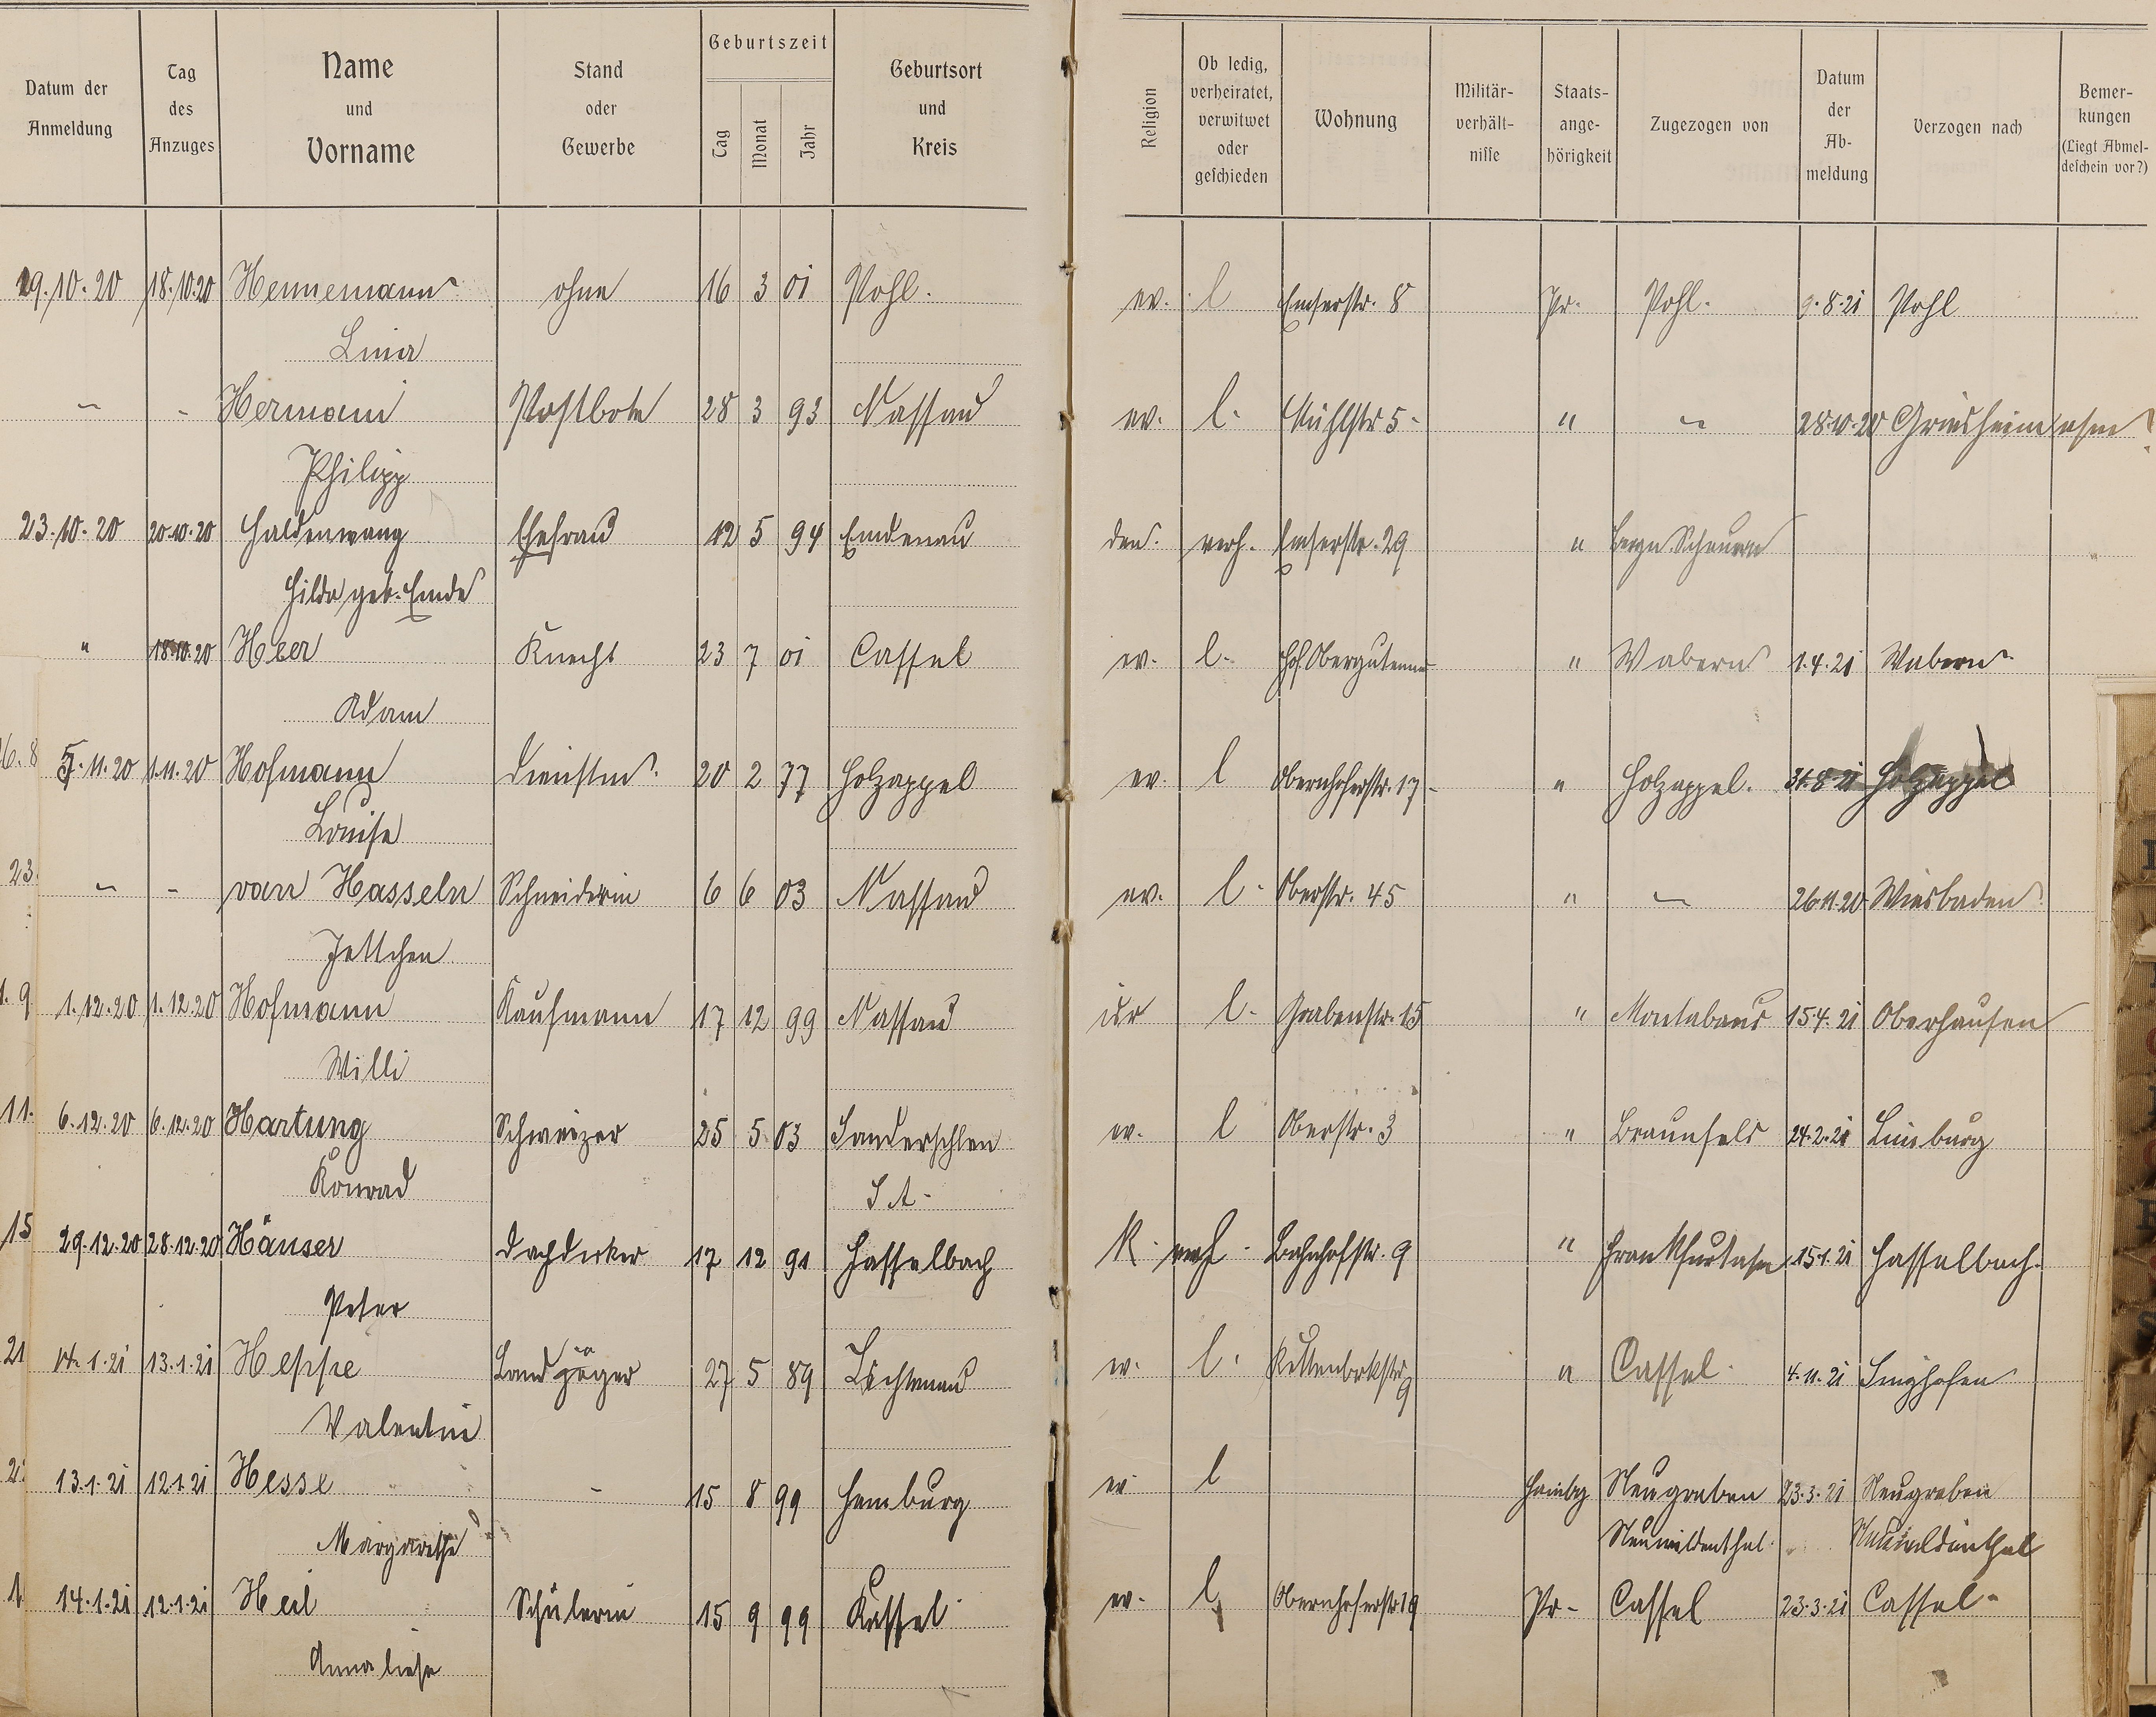 Datum der Anmeldung | Tag des Anzuges | Name und Vorname | Stand oder Gewerbe | Geburtszeit Tag Monat Jahr | Geburtsort und Kreis | Religion | Ob ledig, verheiratet, verwitwet oder geschieden | Wohnung | Militär-verhält-nisse | Staats-ange-hörigkeit | Zugezogen von | Datum der Ab-meldung | Verzogen nach | Bemer-kungen (Liegt Abmel-deschein vor?)
19.10.20 18.10.20 Hennemann ohne 16 3 01 Pohl. ev. l Emserstr. 8 Pr. Pohl. 9.8.21 Pohl
Lina
" - Hermann Postbote 28 3 93 Nassau ev. l. Mühlstr 5 - " " 28.10.20 Griesheim
Philipp
23.10.20 20.10.20 Haldenwang Ehefrau 12 5 94 Emdenau verh. Emserstr. 29 " Bergn Scheuern
Hilda geb. Emde
" 18.10.20 Heer Knecht 23 7 01 Cassel ev. l. Hof Obergutenau " Wabern 1.4.21 Wabern
Adam
5.11.20 1.11.20 Hofmann Dienstm. 20 2 77 Holzappel ev. l Obernhoferstr. 17 - " Holzappel. 31.8.21 Holzappel
Louise
" - von Hasseln Schneiderin 6 6 03 Nassau ev. l. Oberstr. 45 " " 26.11.20 Wiesbaden
Jettchen
1.12.20 1.12.20 Hofmann Kaufmann 17 12 99 Nassau isr l. Grabenstr. 15 " Montabaur 15.4.21 Oberhausen
Willi
6.12.20 6.12.20 Hartung Schweizer 25 5 03 Sanderschlen ev. l Oberstr. 3 " Braunfels 24.2.21 Limburg
Konrad S A -
29.12.20 28.12.20 Häuser Dachdecker 17 12 91 Hasselbach K. verh. Bahnhofstr. 9 " 15.1.21 Hasselbach.
Peter
14.1.21 13.1.21 Heppe Landjäger 27 5 89 Lichtenau ev. l. Kettenbrückstr 9 " Cassel. 4.11.21 Singhofen
Valentin
13.1.21 12.1.21 Hesse - 15 8 99 Hamburg ev. l Hambg Neugraben 23.3.21 Neugraben
Margarethe Neuwildenthal. Neuwildenthal
14.1.21 12.1.21 Heil Schülerin 15 9 99 Kassel. ev. l Obernhoferstr 19 Pr - Cassel 23.3.21 Cassel -
Anna liese